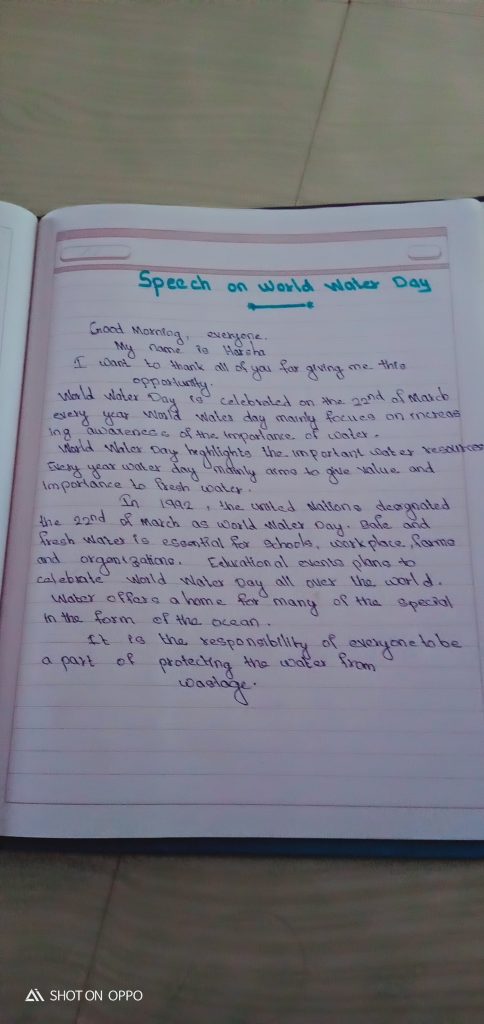 Speech on World Water Day
Good Morning, everyone.
My name is Harsha
I want to thank all of you for giving me this
opportunity.
World Water Day is celebrated on the 22nd of March
every year World Water day mainly focues on increas
ing awareness of the importance of water.
World Water Day highlights the important water resources
Every year water day mainly aims to give value and
importance to fresh water.
In 1992, the united Nations designated
the 22nd of March as World Water Day. Safe and
fresh water is essential for schools, workplace, farms
and organizations. Educational events plans to
celebrate World Water Day all over the world.
Water offers a home for many of the special
in the form of the ocean.
It is the responsibility of everyone to be
a part of protecting the water from
wastage.
SHOT ON OPPO